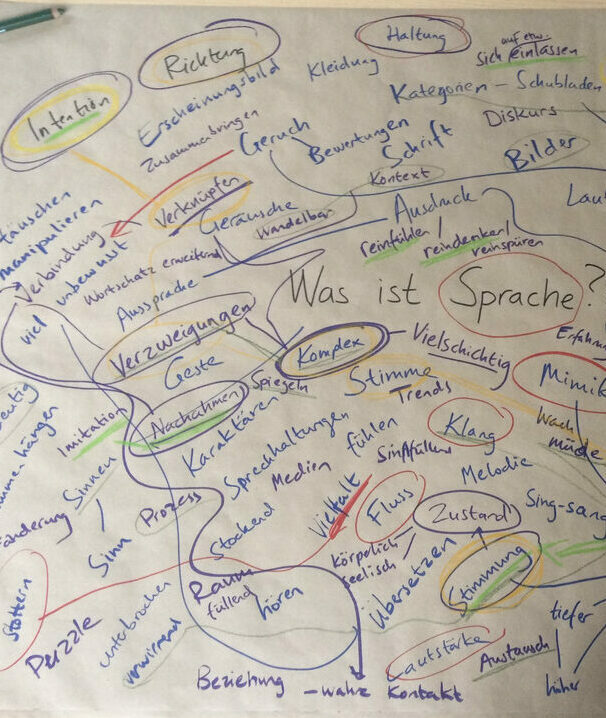 Haltung
Richtung
auf etw.
sich einlassen
Kleidung
Erscheinungsbild
Kategorien - Schubladen
Intention
Zusammenbringen
Geruch
Diskurs
Bewertungen
Schrift
Bilder
Kontext
Verknüpfen
Geräusche
Wandelbar
Ausdruck
täuschen
manipulieren
Verbindung
unbewusst
reinfühlen /
reindenken /
reinspüren
Wortschatz erweiternd
Aussprache
Was ist Sprache?
viel
Verzweigungen
Komplex
Vielschichtig
Geste
Stimme
Trends
Mimik
Nachahmen
Spiegeln
Imitation
Karaktären
Sprechhaltungen
fühlen
Klang
Wach
müde
Sinnen
Medien
Melodie
Prozess
Vielfalt
Fluss
Zustand
Sing-sang
Sinn
Stockend
körperlich
seelisch
Stottern
Raum
füllend
hören
Übersetzen
Stimmung
Puzzle
unterbrochen
verwirrend
tiefer
Lautstärke
Austausch
höher
Beziehung - wahre Kontakt